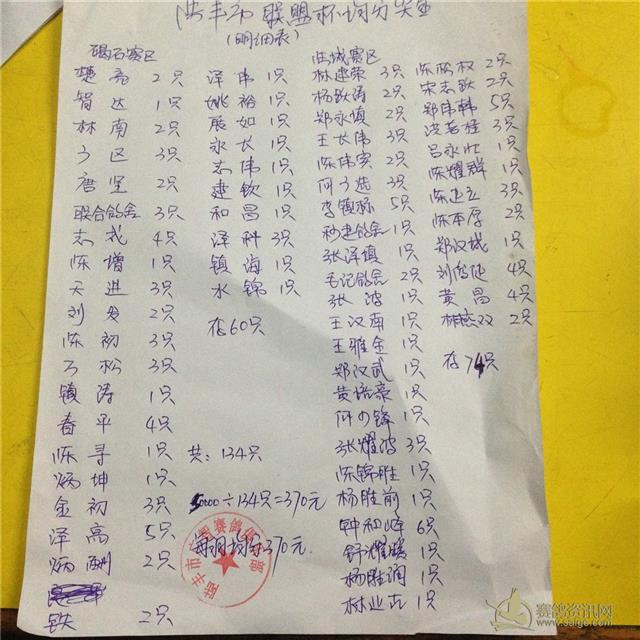 陆丰市联盟杯均分奖金
(明细表)
碣石赛区
楚斋 2只
智达 1只
林南 2只
3只
唐坚 2只
联合鸽舍 3只
志戎 4只
陈增 1只
天进 3只
刘 2只
陈初 3只
松 3只
镇涛 1只
春平 4只
陈寻 1只
炳坤 1只
金初 3只
泽高 5只
炳 2只
铁 2只
泽伟 1只
姚裕 1只
展如 1只
永长 1只
志伟 1只
建钦 1只
和昌 1只
泽科 3只
镇海 1只
水锦 1只
存60只
共:134只
50000÷134只=370元
每羽均得370元.
陆丰市 赛鸽
城赛区
林建荣 3只
杨跃涛 2只
郑永慎 2只
王长伟 3只
陈伟 2只
3只
李镇 5只
秒建鸽舍 1只
张泽慎 1只
毛记鸽舍 2只
张波 1只
王汉南 1只
王雅金 1只
郑汉武 1只
黄培豪 1只
何少锋 1只
张耀波 3只
陈锦胜 1只
杨胜前 1只
钟和 6只
舒耀 1只
杨胜 1只
林业吉 1只
权 2只
宋志跃 2只
郑伟韩 5只
3只
吕永壮 1只
陈耀群 1只
陈建立 3只
陈本厚 2只
郑汉城 1只
刘 4只
黄昌 4只
林 双 2只
存74只
赛鸽资讯网
www.saige.com